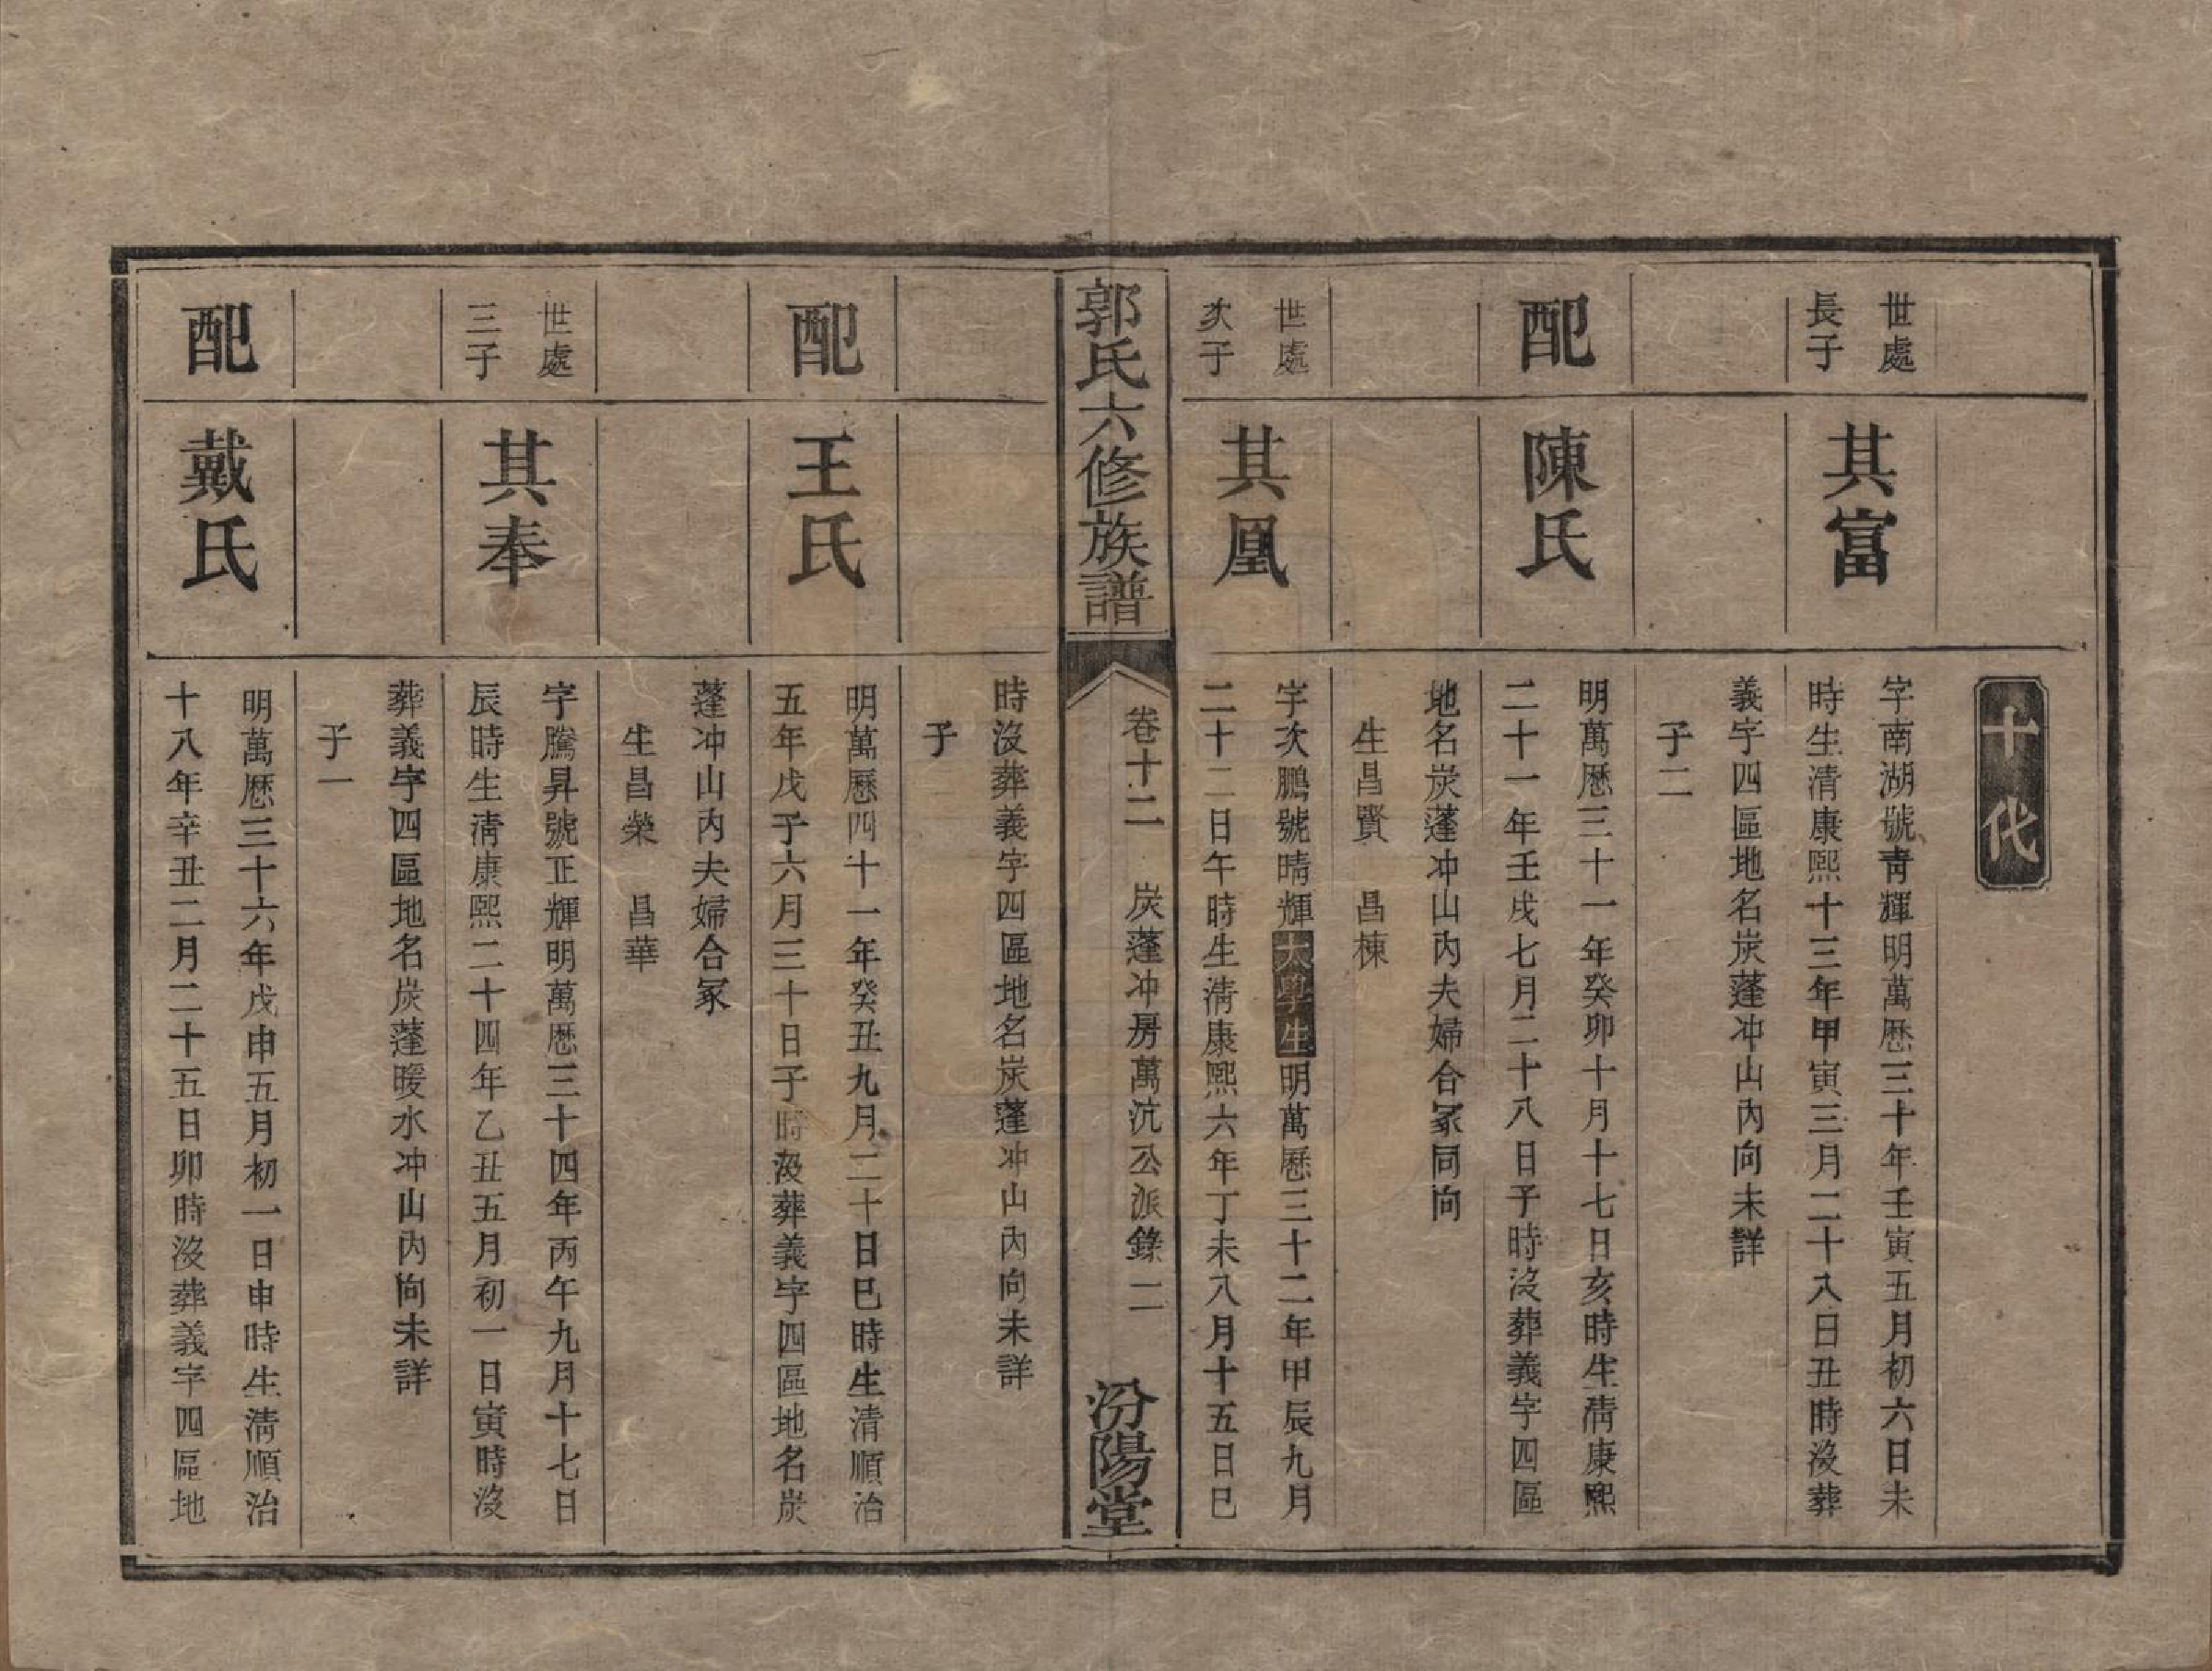 十代
世處
長子
其富
字南湖號靑輝明萬歷三十年壬寅五月初六日未
時生清康熙十三年甲寅三月二十八日丑時沒葬
義字四區地名炭蓬冲山內向未詳
子二
配
陳氏
明萬歷三十一年癸卯十月十七日亥時生淸康熙
二十一年壬戌七月二十八日子時沒葬義字四區
地名炭蓬冲山內夫婦合冢同向
生昌賢　昌棟
世處
次子
其凰
字次鵬號晴輝太學生明萬歷三十二年甲辰九月
二十二日午時生淸康熙六年丁未八月十五日巳
郭氏六修族譜
卷十二　炭蓬冲房萬沆公派錄　二
汾陽堂
時沒葬義字四區地名炭蓬冲山內向未詳
子二
配
王氏
明萬歷四十一年癸丑九月二十日巳時生清順治
五年戊子六月三十日子時沒葬義字四區地名炭
蓬冲山內夫婦合冢
生昌榮　昌華
世處
三子
其奉
字騰昇號正輝明萬歷三十四年丙午九月十七日
辰時生淸康熙二十四年乙丑五月初一日寅時沒
葬義字四區地名炭蓬暖水冲山內向未詳
子一
配
戴氏
明萬歷三十六年戊申五月初一日申時生淸順治
十八年辛丑二月二十五日卯時沒葬義字四區地